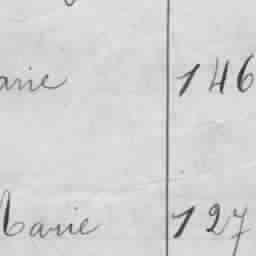 arie 146
Marie 127